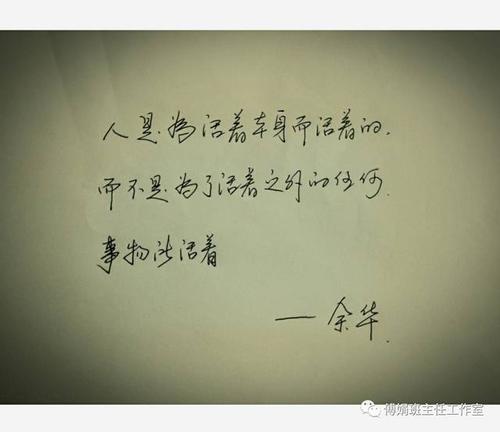 人是為活着本身而活着的.
而不是为了活着之外的任何.
事物所活着
——余华.
傅娟班主任工作室